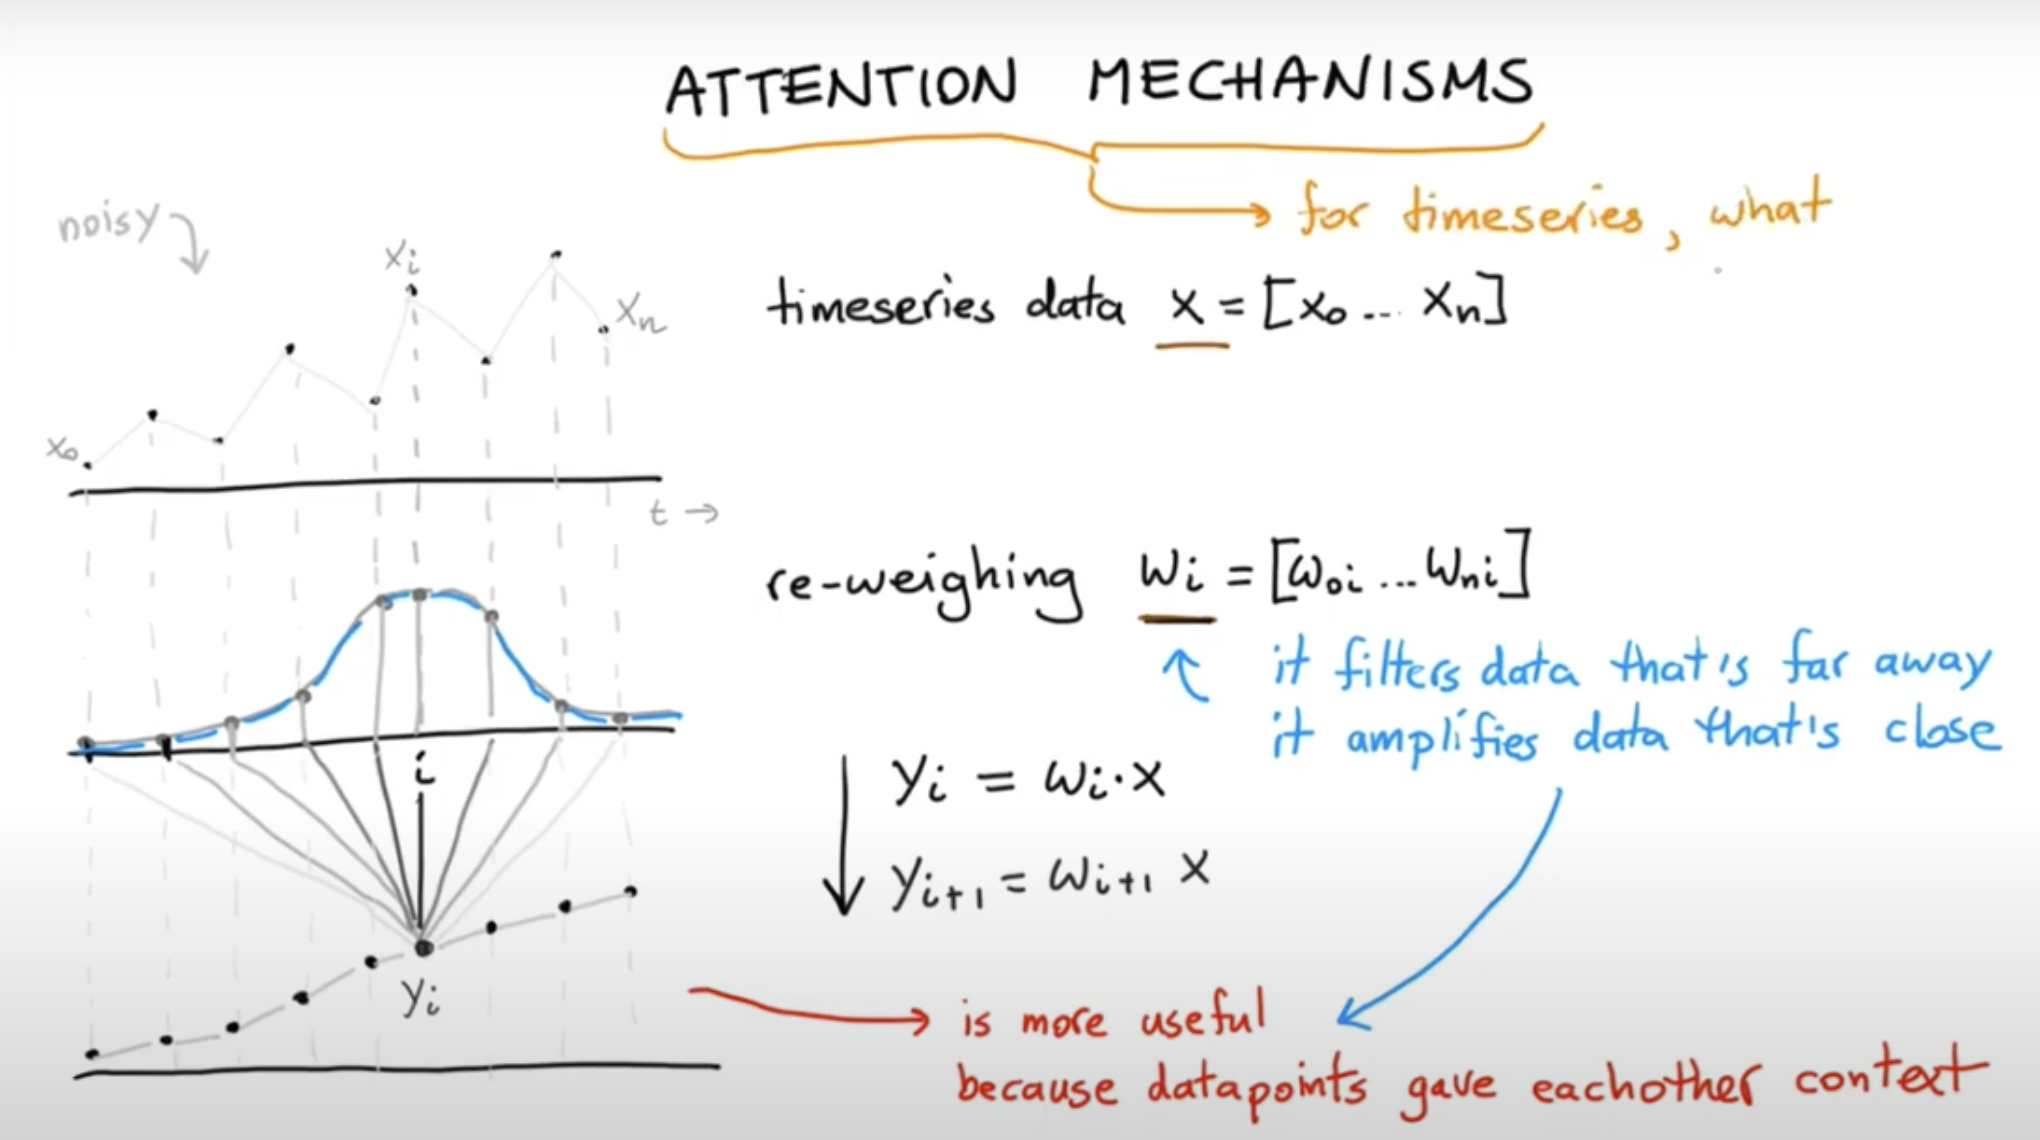 ATTENTION MECHANISMS
for timeseries, what
noisy
xi
xn
x0
t →
timeseries data x = [x0 ... xn]
re-weighing wi = [w0i ... wni]
it filters data that's far away
it amplifies data that's close
i
yi = wi · x
yi+1 = wi+1 x
yi
is more useful
because datapoints gave eachother context